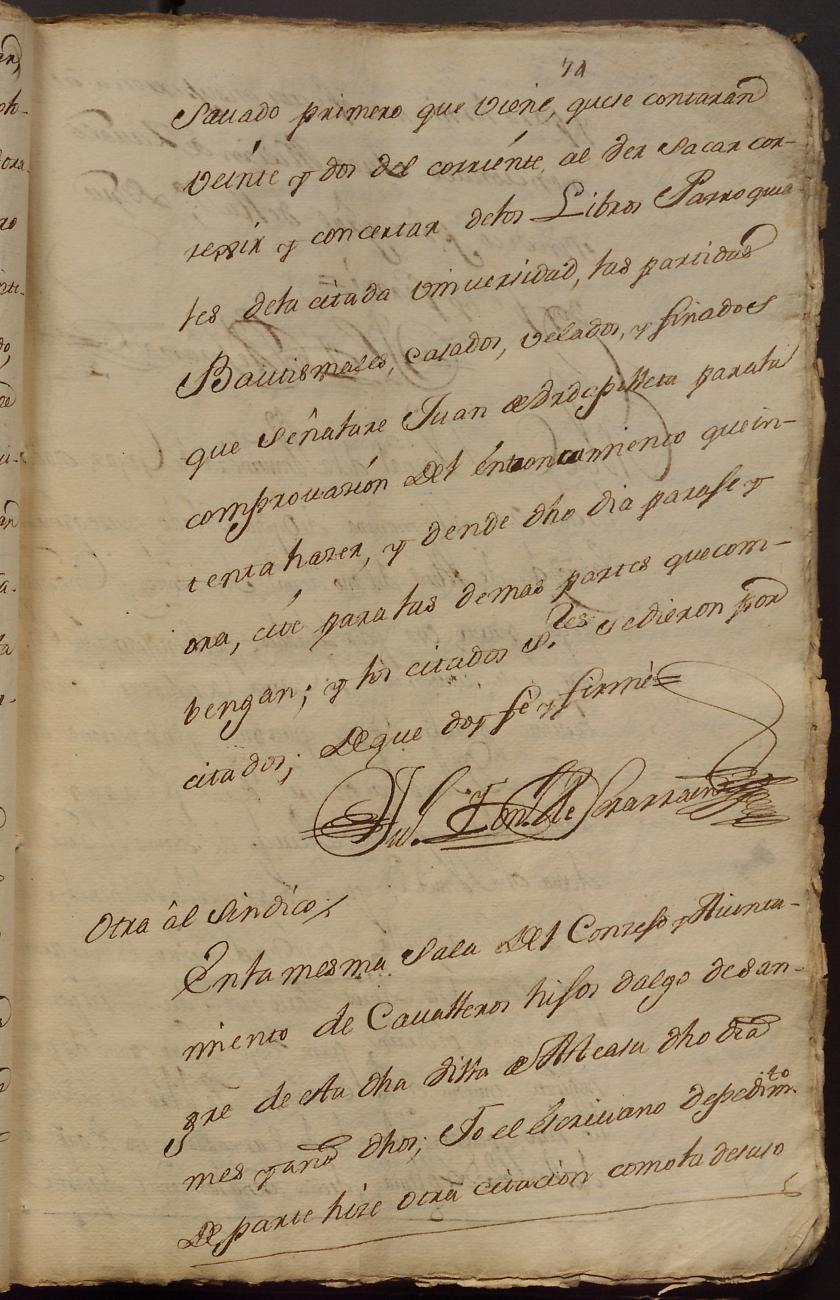 Sauado primero que viene, quese contaran
veinte y dos del corriente, al der Sacar cor-
rexir y concertar delos Libros Parroquia-
les dela citada Vniuersidad, las partidas
Bautismales, casados, velados, y finados
que señalare Juan de para la
comprouasion del entroncamiento que in-
tenta hazer, y dende dho dia parase y
ora, cite para las demas partes que com-
bengan; y los citados S.res se dieron por
citados; De que doy fe y firme=
otra âl Sindico
En la mesma Sala del Conzejo y Aiunta-
miento de Caualleros hijos dalgo de san-
gre de esta dha Villa de dho dia
mes y año dhos; Yo el escriuano de pedim.to
De parte hize otra citacion como la desuso